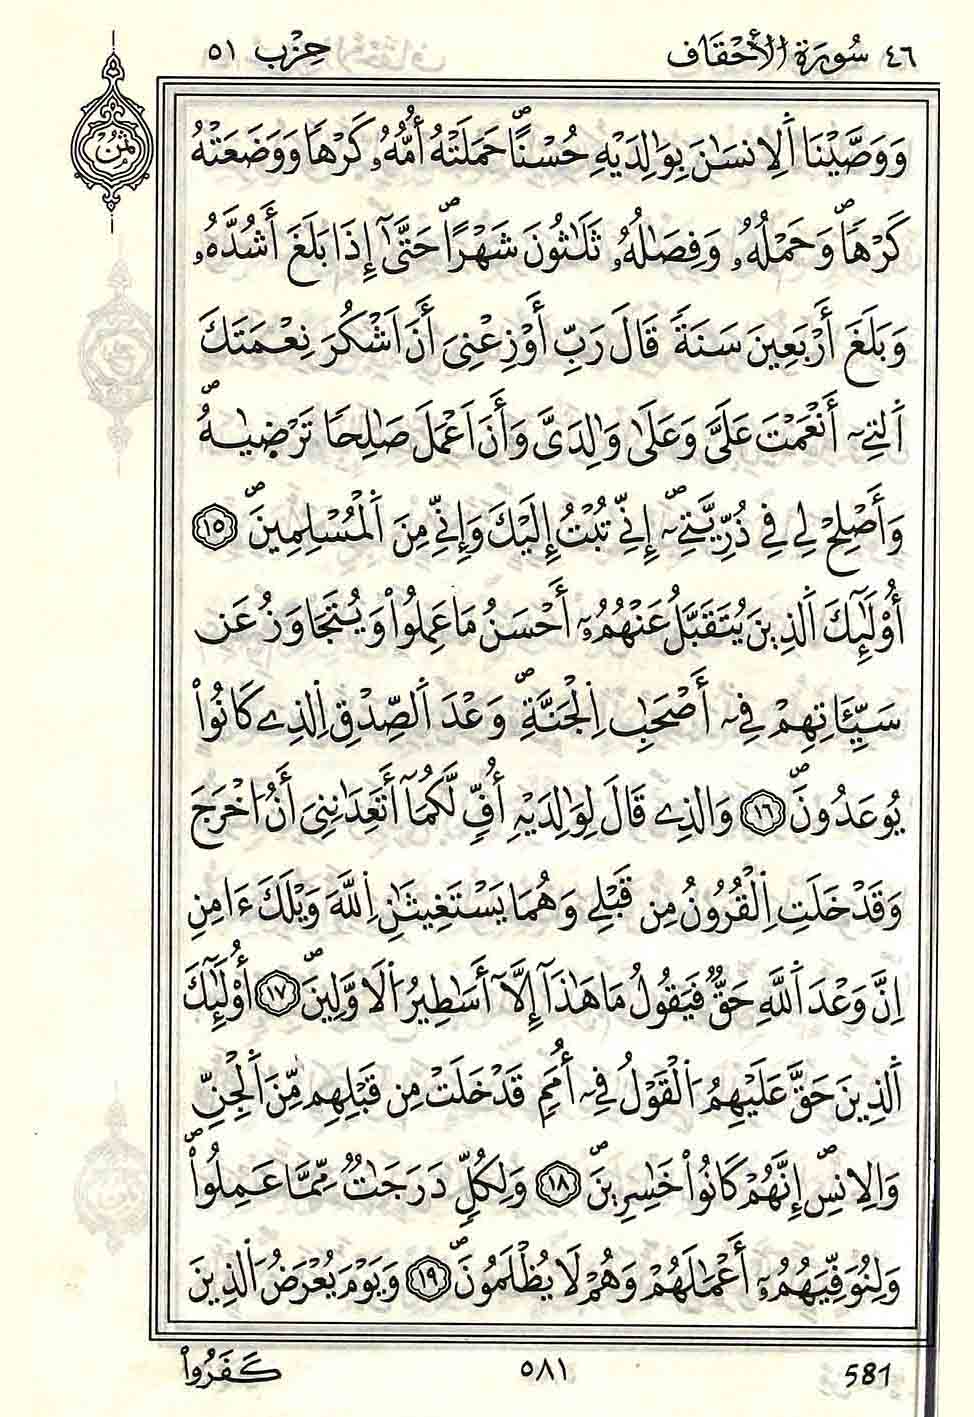 ٤٦ سُورَةُ الأَحْقَافِ حِزْب ٥١
ثمن
وَوَصَّيْنَا اَلِانسَٰنَ بِوَٰلِدَيْهِ حُسْناًۖ حَمَلَتْهُ أُمُّهُۥ كَرْهاً وَوَضَعَتْهُ
كَرْهاًۖ وَحَمْلُهُۥ وَفِصَٰلُهُۥ ثَلَٰثُونَ شَهْراًۖ حَتَّىٰٓ إِذَا بَلَغَ أَشُدَّهُۥ
وَبَلَغَ أَرْبَعِينَ سَنَةً قَالَ رَبِّ أَوْزِعْنِىَ أَنَ اَشْكُرَ نِعْمَتَكَ
اَلتِےٓ أَنْعَمْتَ عَلَىَّ وَعَلَىٰ وَٰلِدَىَّ وَأَنَ اَعْمَلَ صَٰلِحاً تَرْضِيٰهُۖ
وَأَصْلِحْ لِے فِے ذُرِّيَّتِےٓۖ إِنِّے تُبْتُ إِلَيْكَ وَإِنِّے مِنَ اَلْمُسْلِمِينَۖ ١٥
أُوْلَٰٓئِكَ اَلذِينَ يُتَقَبَّلُ عَنْهُمُۥٓ أَحْسَنُ مَا عَمِلُواْ وَيُتَجَاوَزُ عَن
سَيِّـَٔاتِهِمْ فِےٓ أَصْحَٰبِ اِلْجَنَّةِۖ وَعْدَ اَلصِّدْقِ اِلذِے كَانُواْ
يُوعَدُونَۖ ١٦ وَالذِے قَالَ لِوَٰلِدَيْهِ أُفٍّ لَّكُمَآ أَتَعِدَٰنِنِىَ أَنُ اُخْرَجَ
وَقَدْ خَلَتِ اِلْقُرُونُ مِن قَبْلِے وَهُمَا يَسْتَغِيثَٰنِ اِللَّهَ وَيْلَكَ ءَامِنِ
اِنَّ وَعْدَ اَللَّهِ حَقٌّ فَيَقُولُ مَا هَٰذَآ إِلَّآ أَسَٰطِيرُ اَلَاوَّلِينَۖ ١٧ أُوْلَٰٓئِكَ
اَلذِينَ حَقَّ عَلَيْهِمُ اَلْقَوْلُ فِےٓ أُمَمٍ قَدْ خَلَتْ مِن قَبْلِهِم مِّنَ اَلْجِنِّ
وَالِانسِۖ إِنَّهُمْ كَانُواْ خَٰسِرِينَۖ ١٨ وَلِكُلٍّ دَرَجَٰتٌ مِّمَّا عَمِلُواْۖ
وَلِنُوَفِّيَهُمُۥٓ أَعْمَٰلَهُمْ وَهُمْ لَا يُظْلَمُونَۖ ١٩ وَيَوْمَ يُعْرَضُ اَلذِينَ
كَفَرُواْ ٥٨١ 581